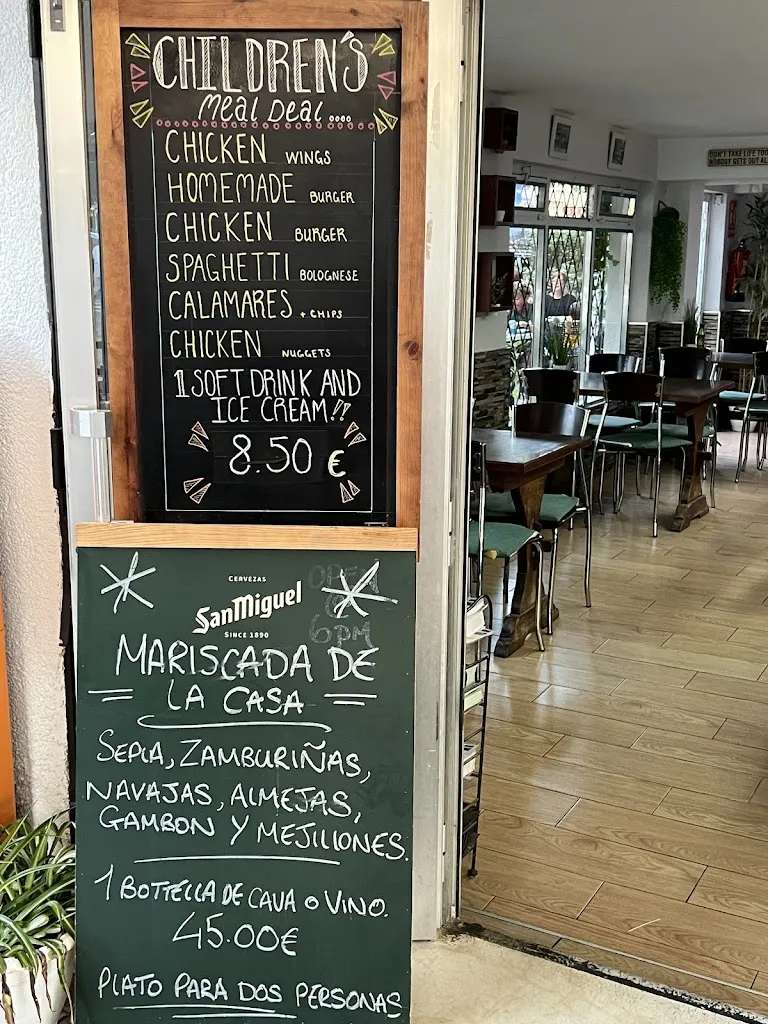 CHILDREN'S
Meal Deal ....
CHICKEN WINGS
HOMEMADE BURGER
CHICKEN BURGER
SPAGHETTI BOLOGNESE
CALAMARES + CHIPS
CHICKEN NUGGETS
1 SOFT DRINK AND
ICE CREAM!!
8.50 €
CERVEZAS
SanMiguel
SINCE 1890
OPEN
@
6PM
MARISCADA DE
LA CASA
SEPIA, ZAMBURIÑAS,
NAVAJAS, ALMEJAS,
GAMBON Y MEJILLONES.
1 BOTTELLA DE CAVA O VINO.
45.00€
PLATO PARA DOS PERSONAS
DON'T TAKE LIFE TOO
NOBODY GETS OUT AL